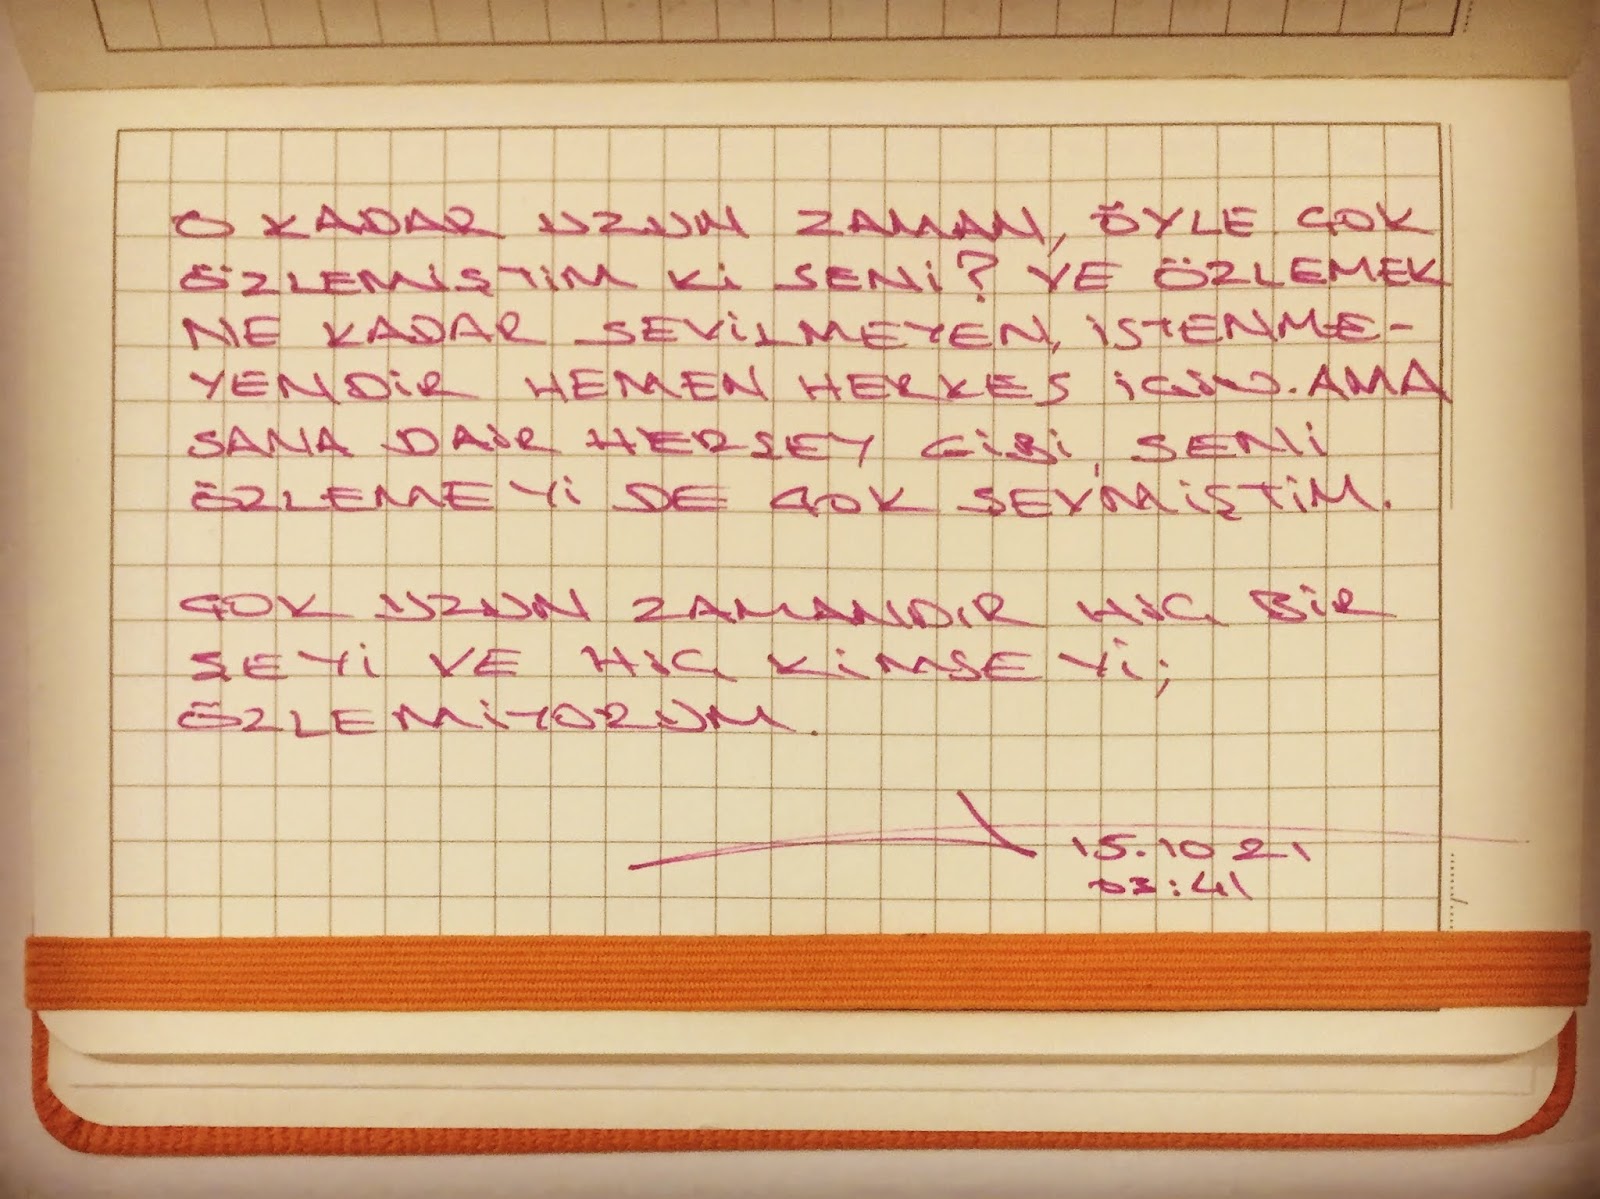 O KADAR UZUN ZAMAN, ÖYLE ÇOK
ÖZLEMİŞTİM Kİ SENİ? VE ÖZLEMEK
NE KADAR SEVİLMEYEN, İSTENME-
YENDİR HEMEN HERKES İÇİN. AMA
SANA DAİR HERŞEY GİBİ, SENİ
ÖZLEMEYİ DE ÇOK SEVMİŞTİM.
ÇOK UZUN ZAMANDIR HİÇ BİR
ŞEYİ VE HİÇ KİMSEYİ;
ÖZLEMİYORUM.
15.10 21
03:41